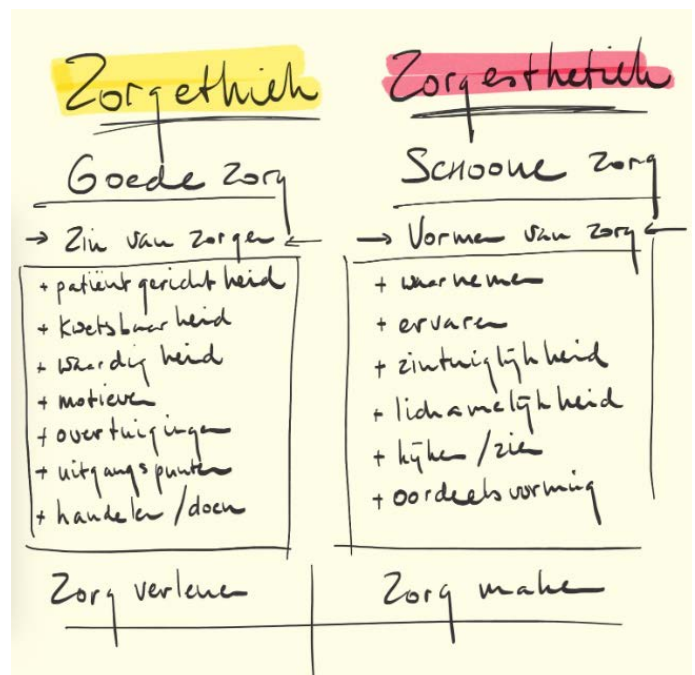 Zorgethiek
Goede zorg
→ Zin van zorgen ←
+ patiëntgerichtheid
+ kwetsbaarheid
+ waardigheid
+ motieven
+ overtuigingen
+ uitgangspunten
+ handelen / doen
Zorg verlenen
Zorgesthetiek
Schoone zorg
→ Vormen van zorg ←
+ waarnemen
+ ervaren
+ zintuiglijkheid
+ lichamelijkheid
+ kijken / zien
+ oordeelsvorming
Zorg maken